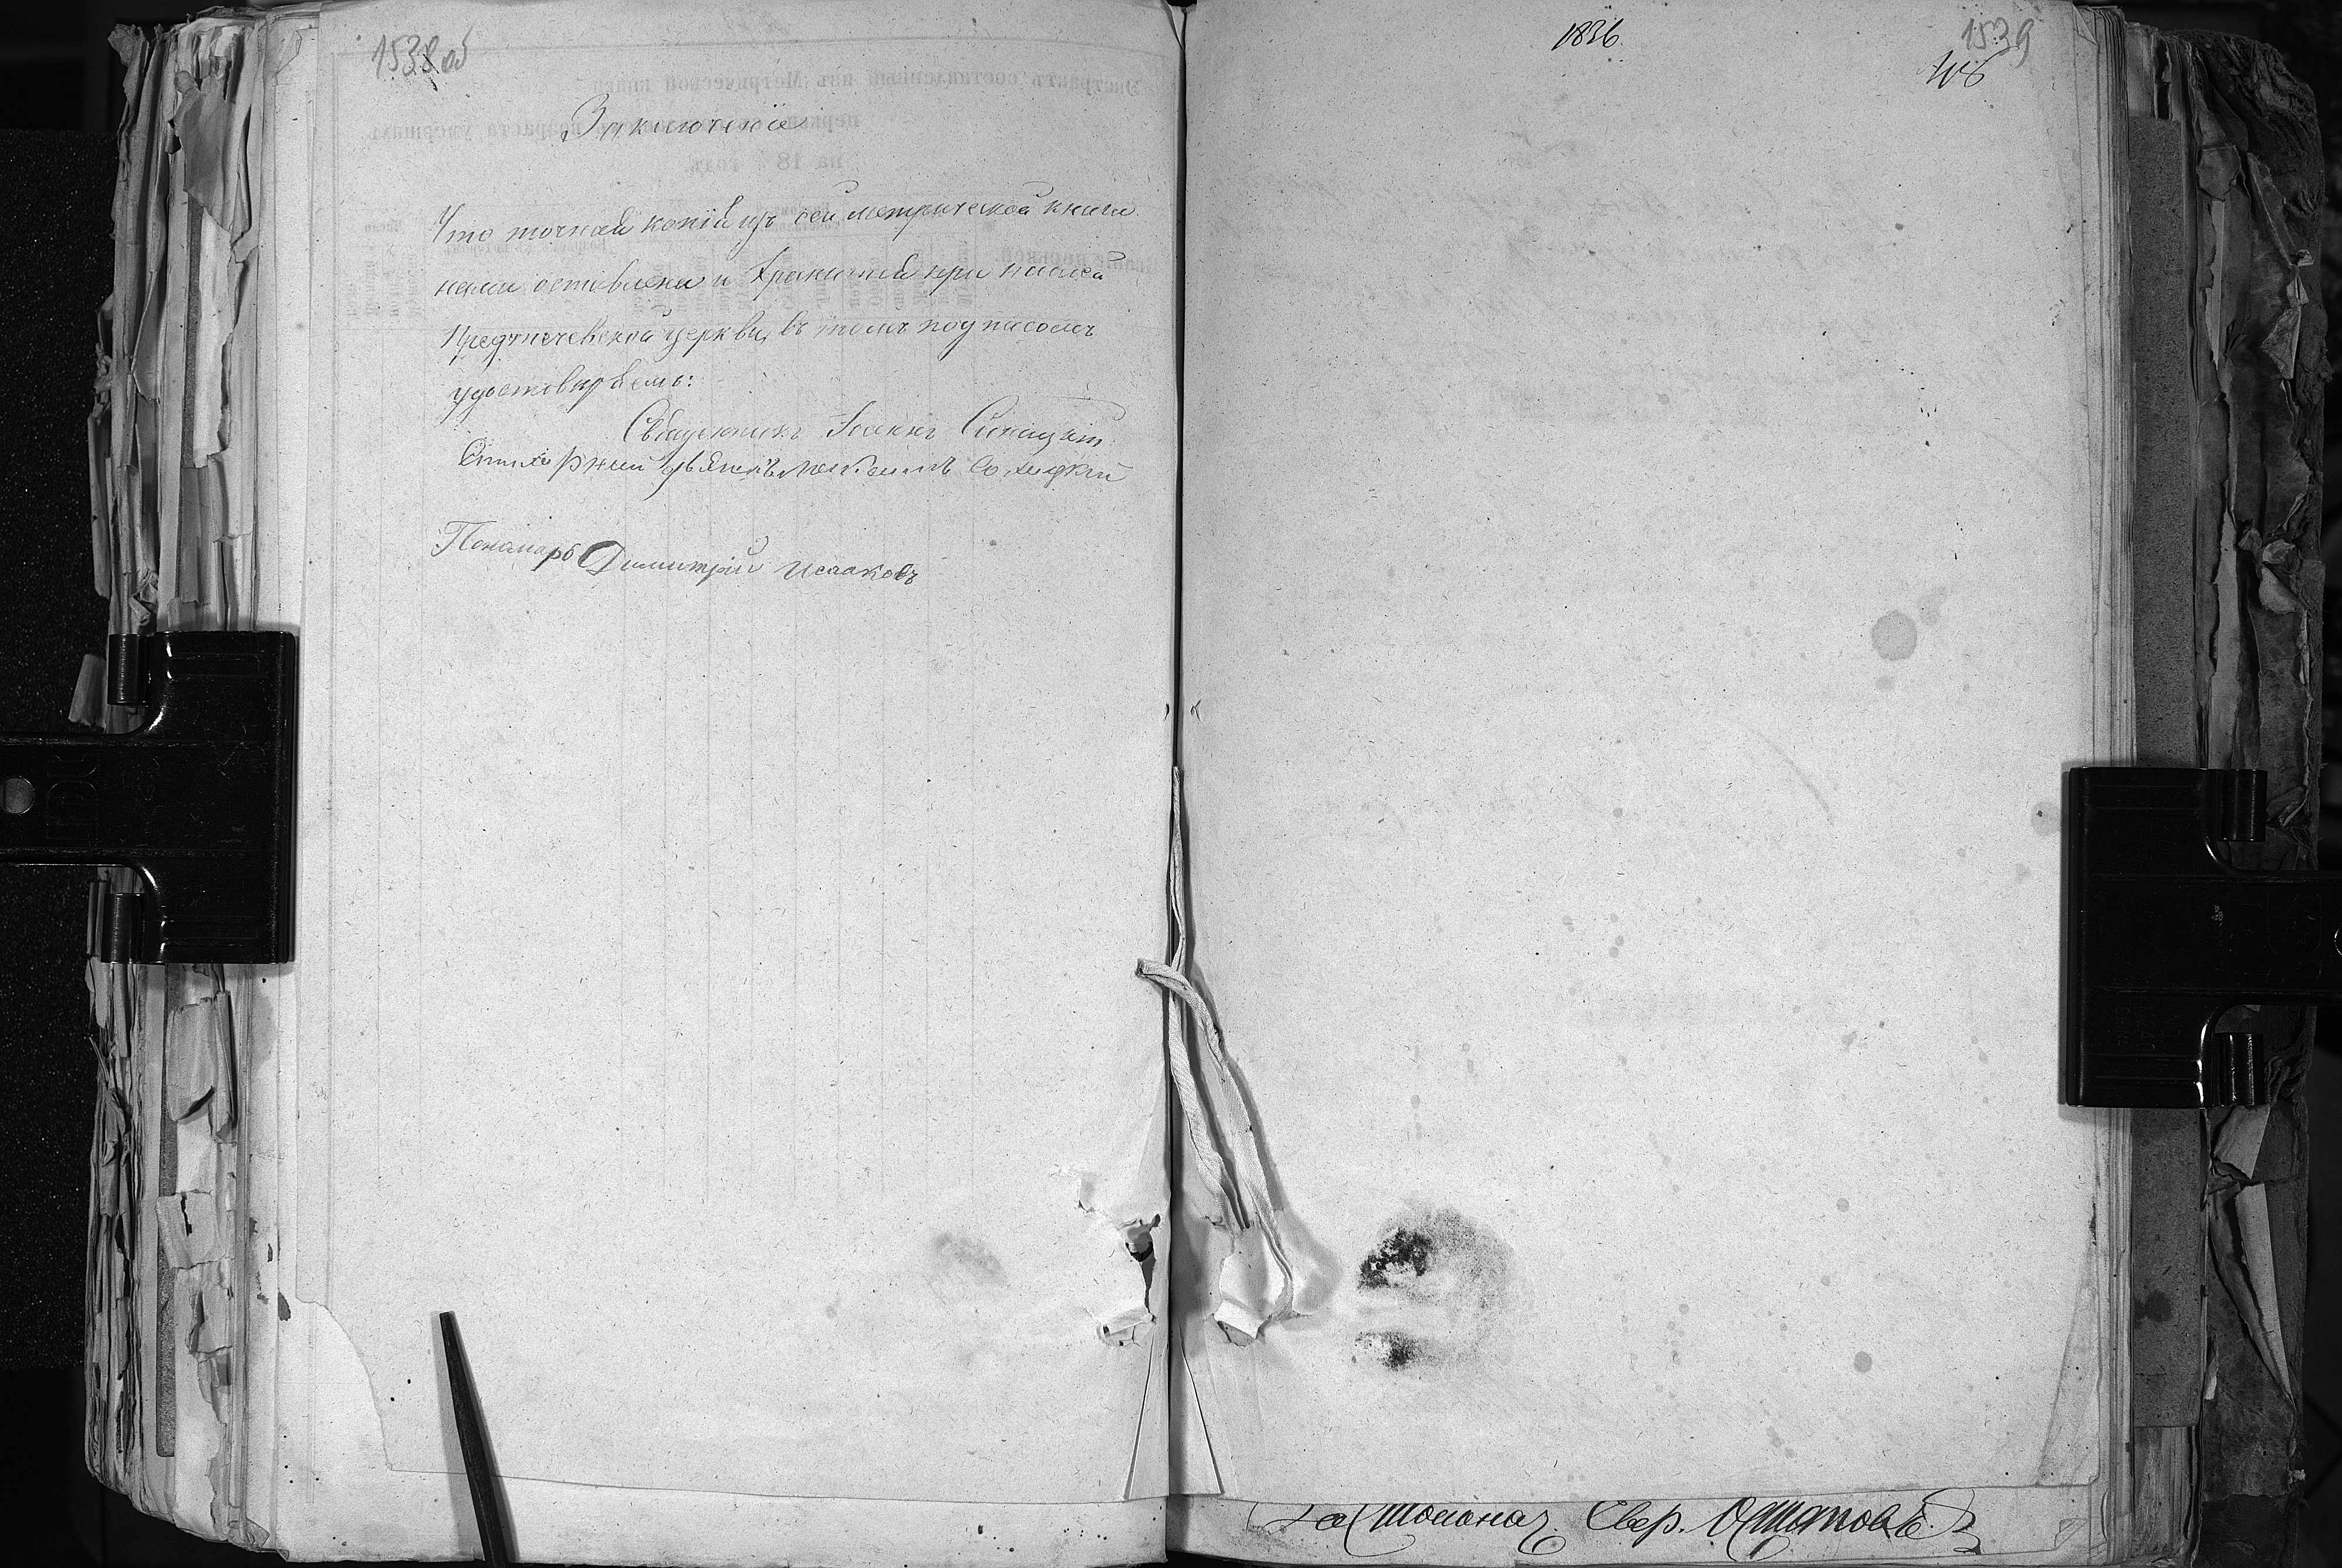 1538 об
Заключеніе
Что точная копія изъ сей метрической книги
нами оставлена и хранится при нашей
Предтечевской церкви, въ томъ подписомъ
удостовѣряемъ:
Священникъ Іоаннъ
Стихарный дьячекъ
Понамарь Димитрій Исааковъ
1836
1539
За Столонач. Свер.